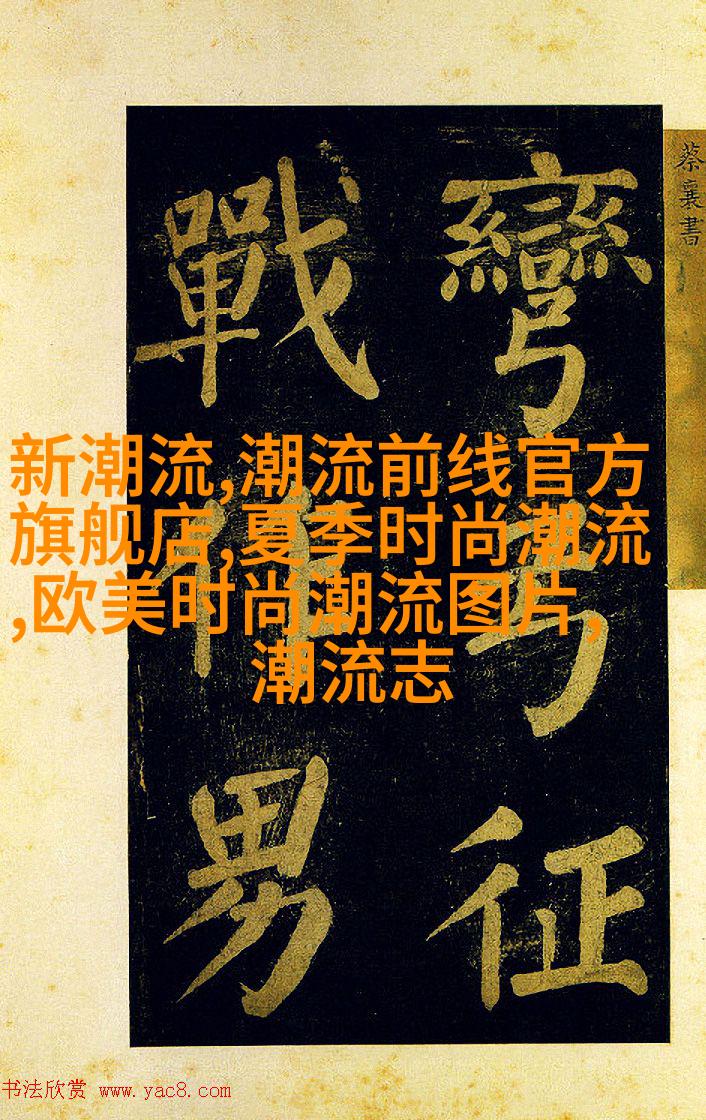 蔡襄書
彎弓征
戰作男
新潮流,潮流前线官方
旗舰店,夏季时尚潮流
,欧美时尚潮流图片,
潮流志
书法欣赏 www.yac8.com